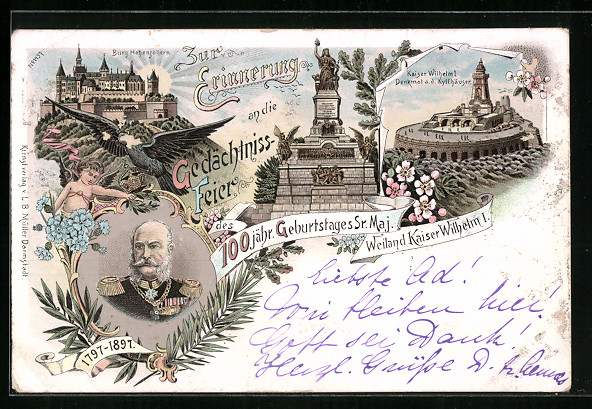 Burg Hohenzollern.
Zur
Erinnerung
an die
Gedächtniss-
Feier
des 100jähr. Geburtstages Sr. Maj.
Weiland Kaiser Wilhelm I.
Kaiser Wilhelm I
Denkmal a. d. Kyffhäuser.
Kunstverlag v. L. B. Müller Darmstadt
1797-1897.
Liebste Ad!
Wir bleiben hier!
Gott sei Dank!
Herzl. Grüße D.